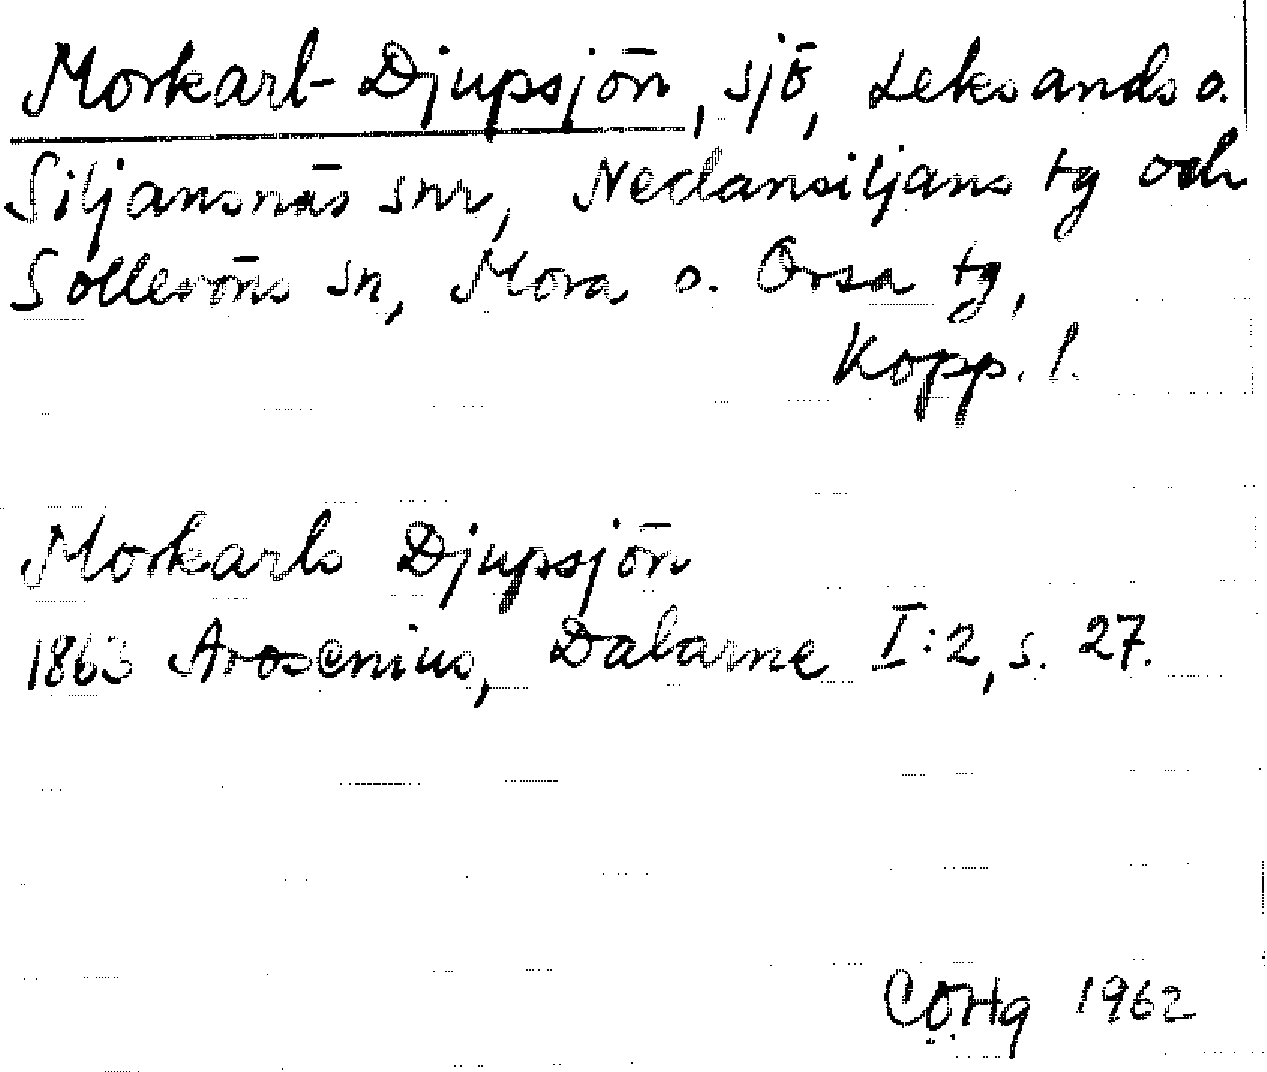 Morkarl-Djupsjön, sjö, Leksands o.
Siljansnäs snr, Nedansiljans tg och
Solleröns sn, Mora o. Orsa tg,
Kopp. l.
Morkarls Djupsjön
1863 Arosenius, Dalarne I:2, s. 27.
1962